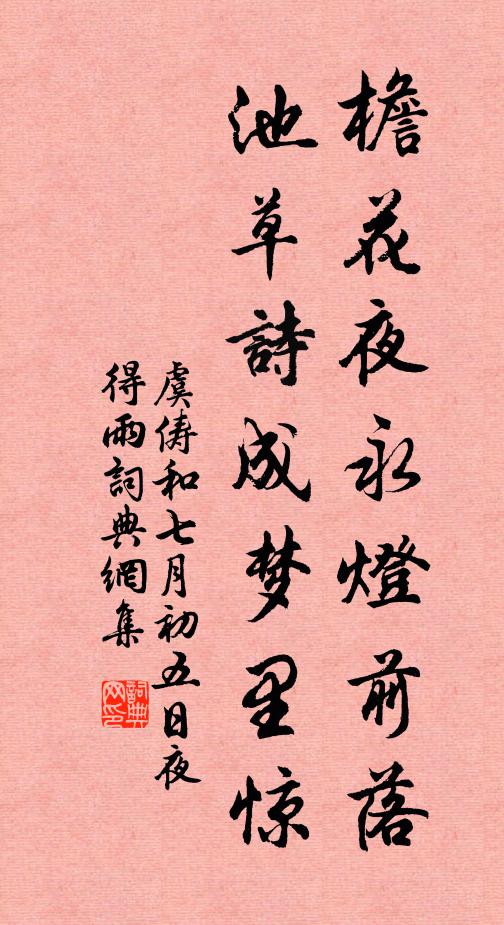 檐花夜永燈前落
池草詩成梦里惊
虞儔和七月初五日夜
得雨詞典網集
詞典
网印